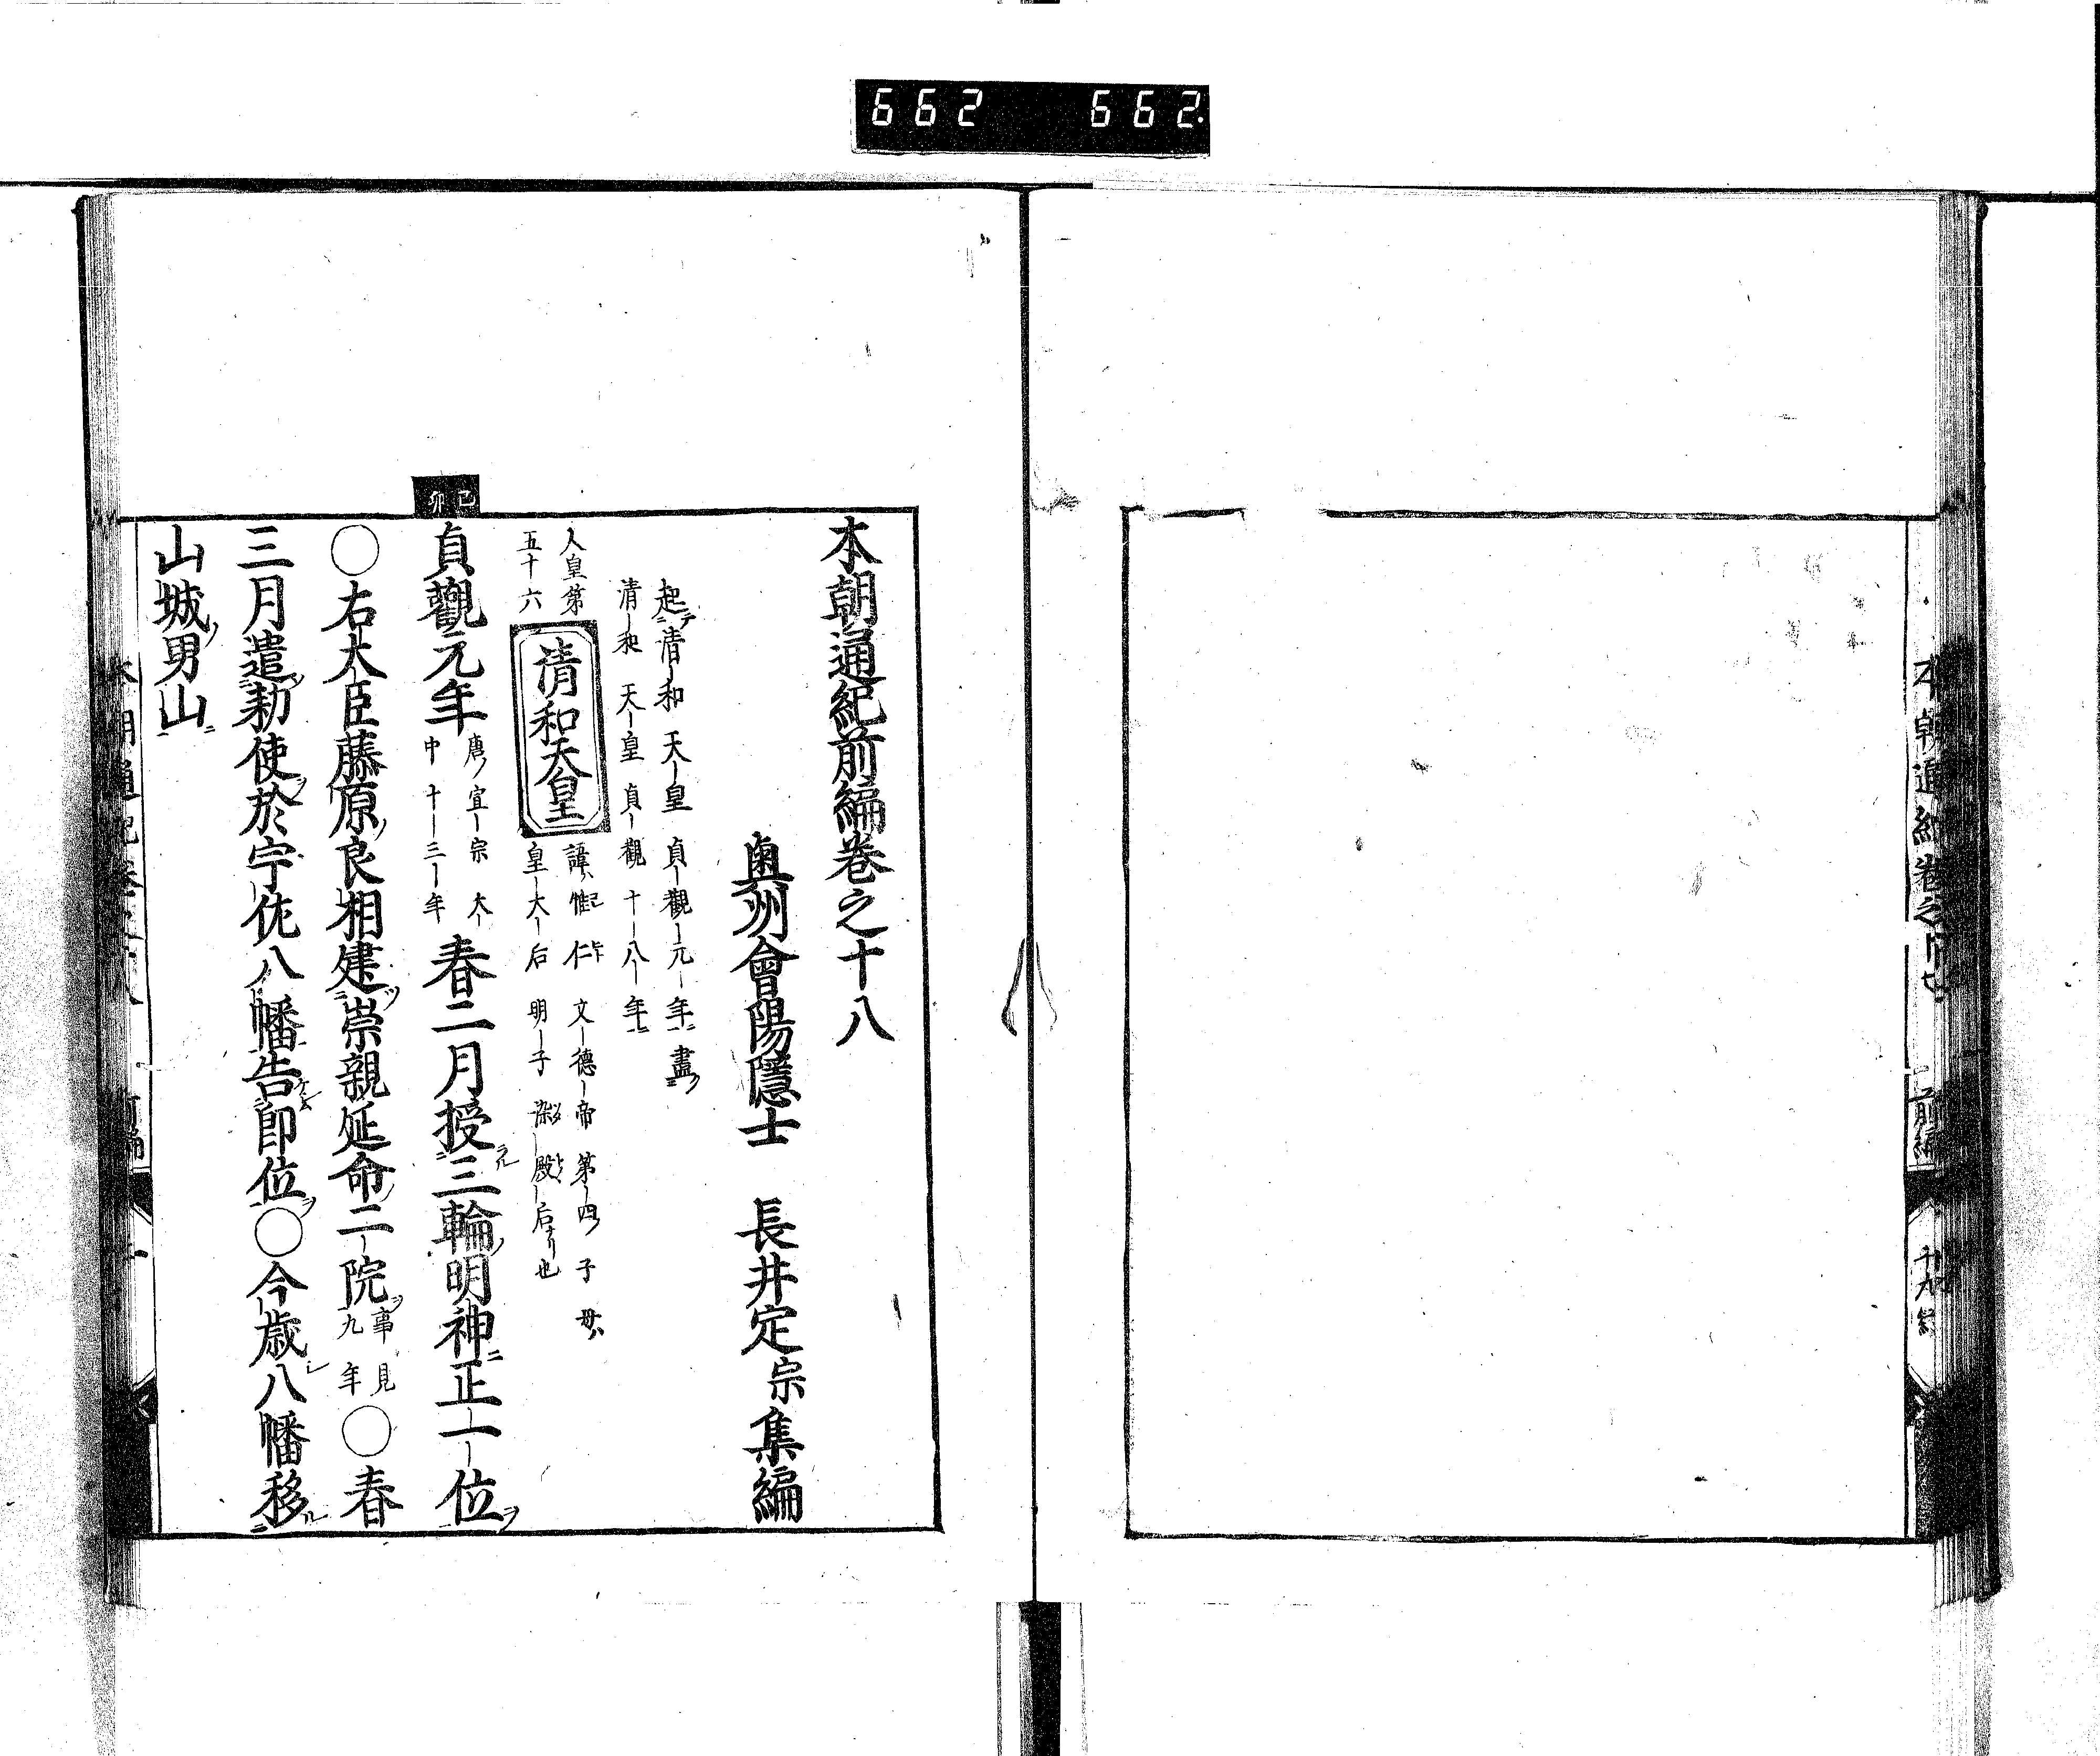 662 662
本朝通紀卷之十七
前編
本朝通紀前編卷之十八
奥州會陽隱士 長井定宗集編
起清和天皇貞觀元年盡
清和天皇貞觀十八年
人皇第
五十六
清和天皇
諱惟仁文德帝第四子母
皇太后明子染殿后也
己卯
貞觀元年
唐宣宗大
中十三年
春二月授三輪明神正一位
〇右大臣藤原良相建崇親延命二院
事見
九年
〇春
三月遣勅使於宇佐八幡告即位〇今歲八幡移
山城男山
本朝通紀卷之十八
前編
一